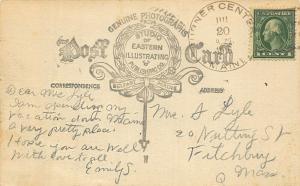 GENUINE PHOTOGRAPHS
STUDIO OF
EASTERN
ILLUSTRATING
Post Card
CORRESPONDENCE
ADDRESS
NER CENTER
20
Dear Mrs Lyle
I am spending my
vacation down Maine
a very pretty place.
Hope you are well
With love to all
Emily S.
Mr. S Lyle
20 Nutting St
Fitchburg
Mass.